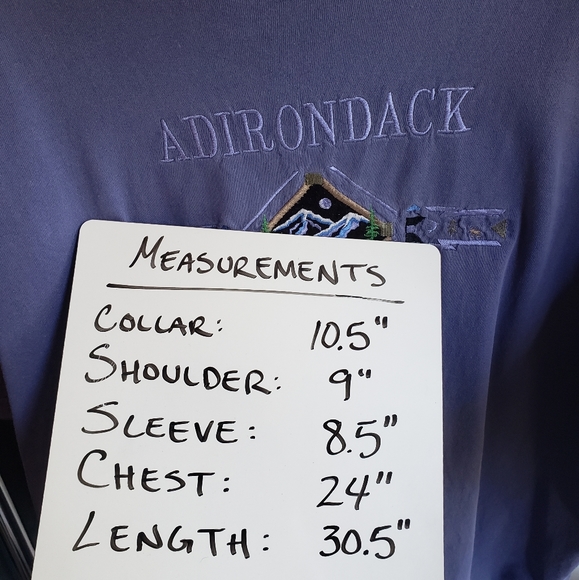 ADIRONDACK
MEASUREMENTS
COLLAR: 10.5"
SHOULDER: 9"
SLEEVE: 8.5"
CHEST: 24"
LENGTH: 30.5"